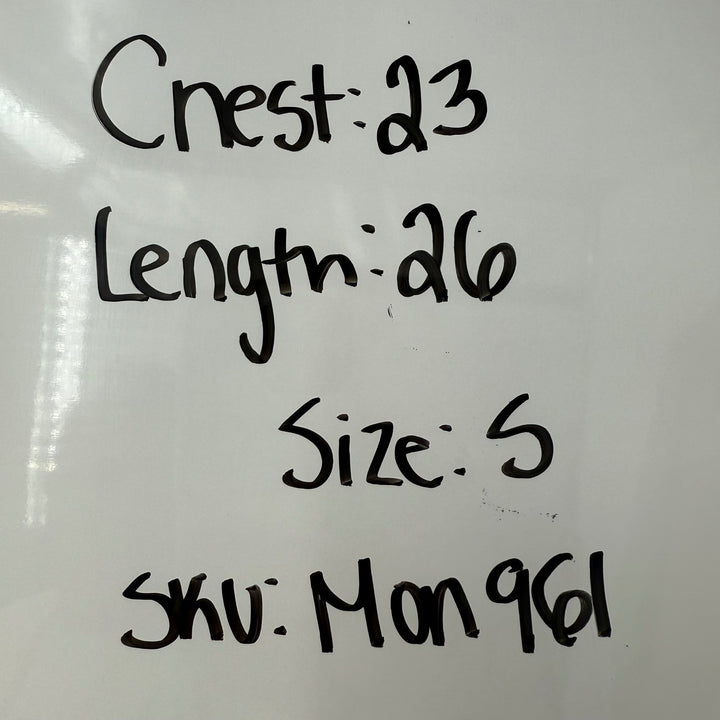 Chest: 23
Length: 26
Size: S
SKU: Mon961